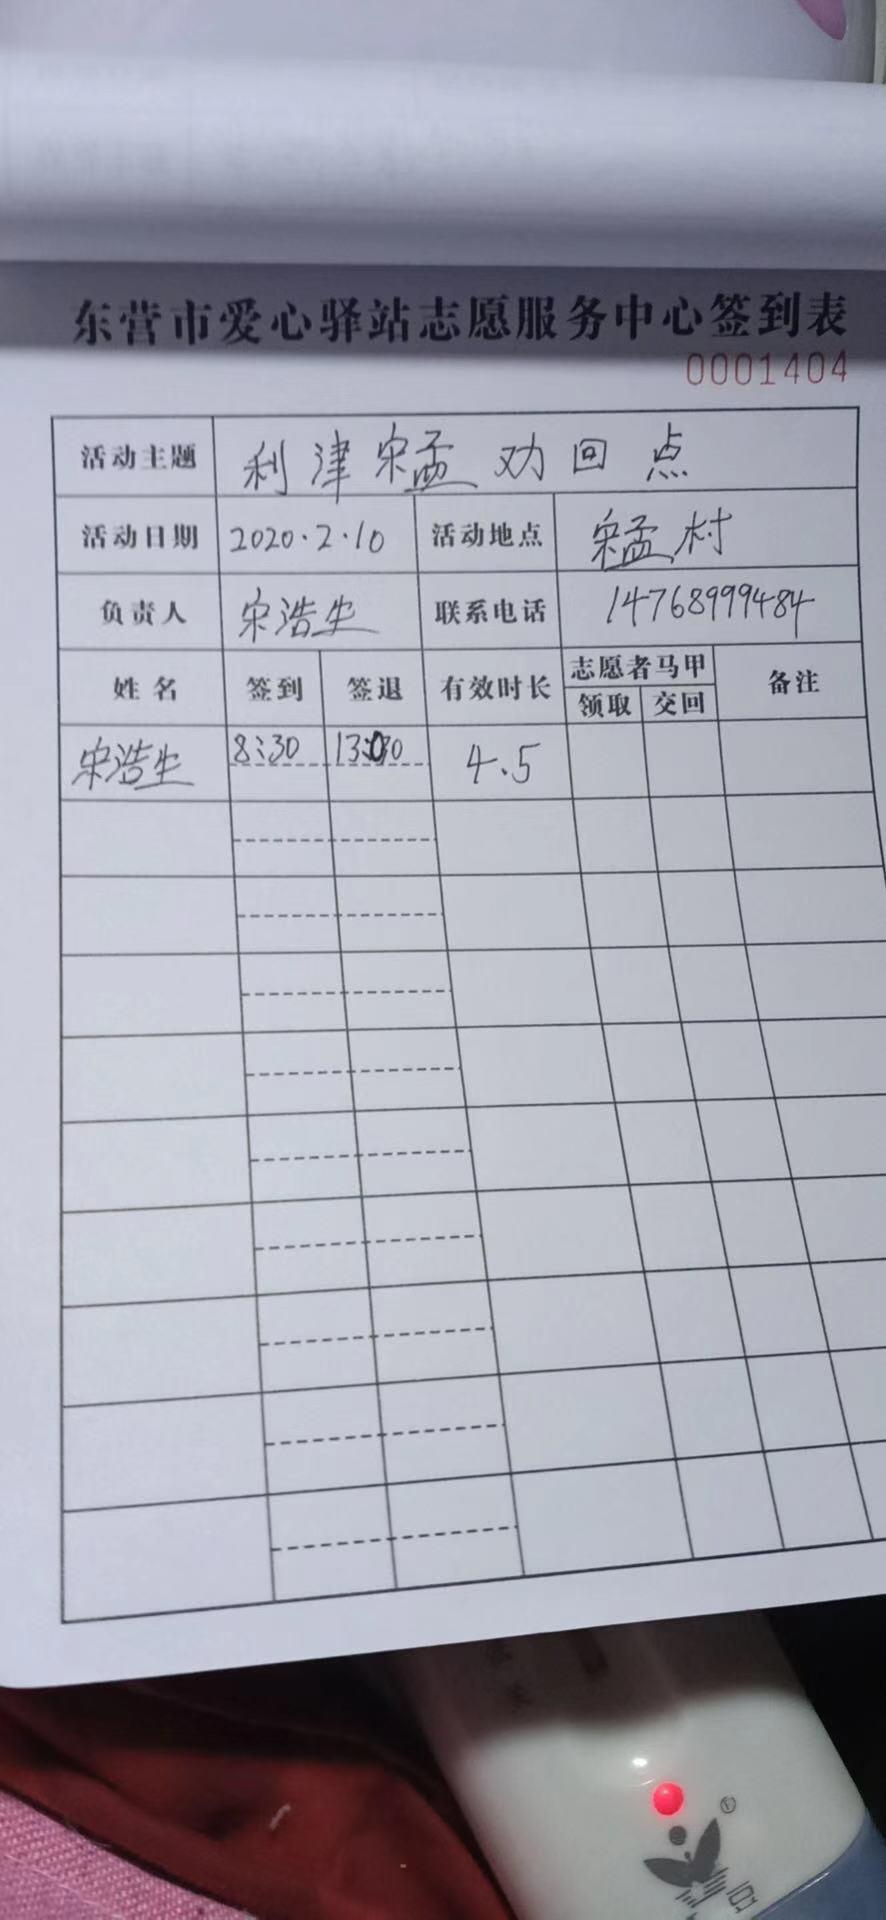 东营市爱心驿站志愿服务中心签到表
0001404
活动主题 利津宋孟劝回点
活动日期 2020.2.10 活动地点 宋孟村
负责人 宋浩生 联系电话 14768999484
姓名 签到 签退 有效时长 志愿者马甲 备注
领取 交回
宋浩生 8:30 13:00 4.5